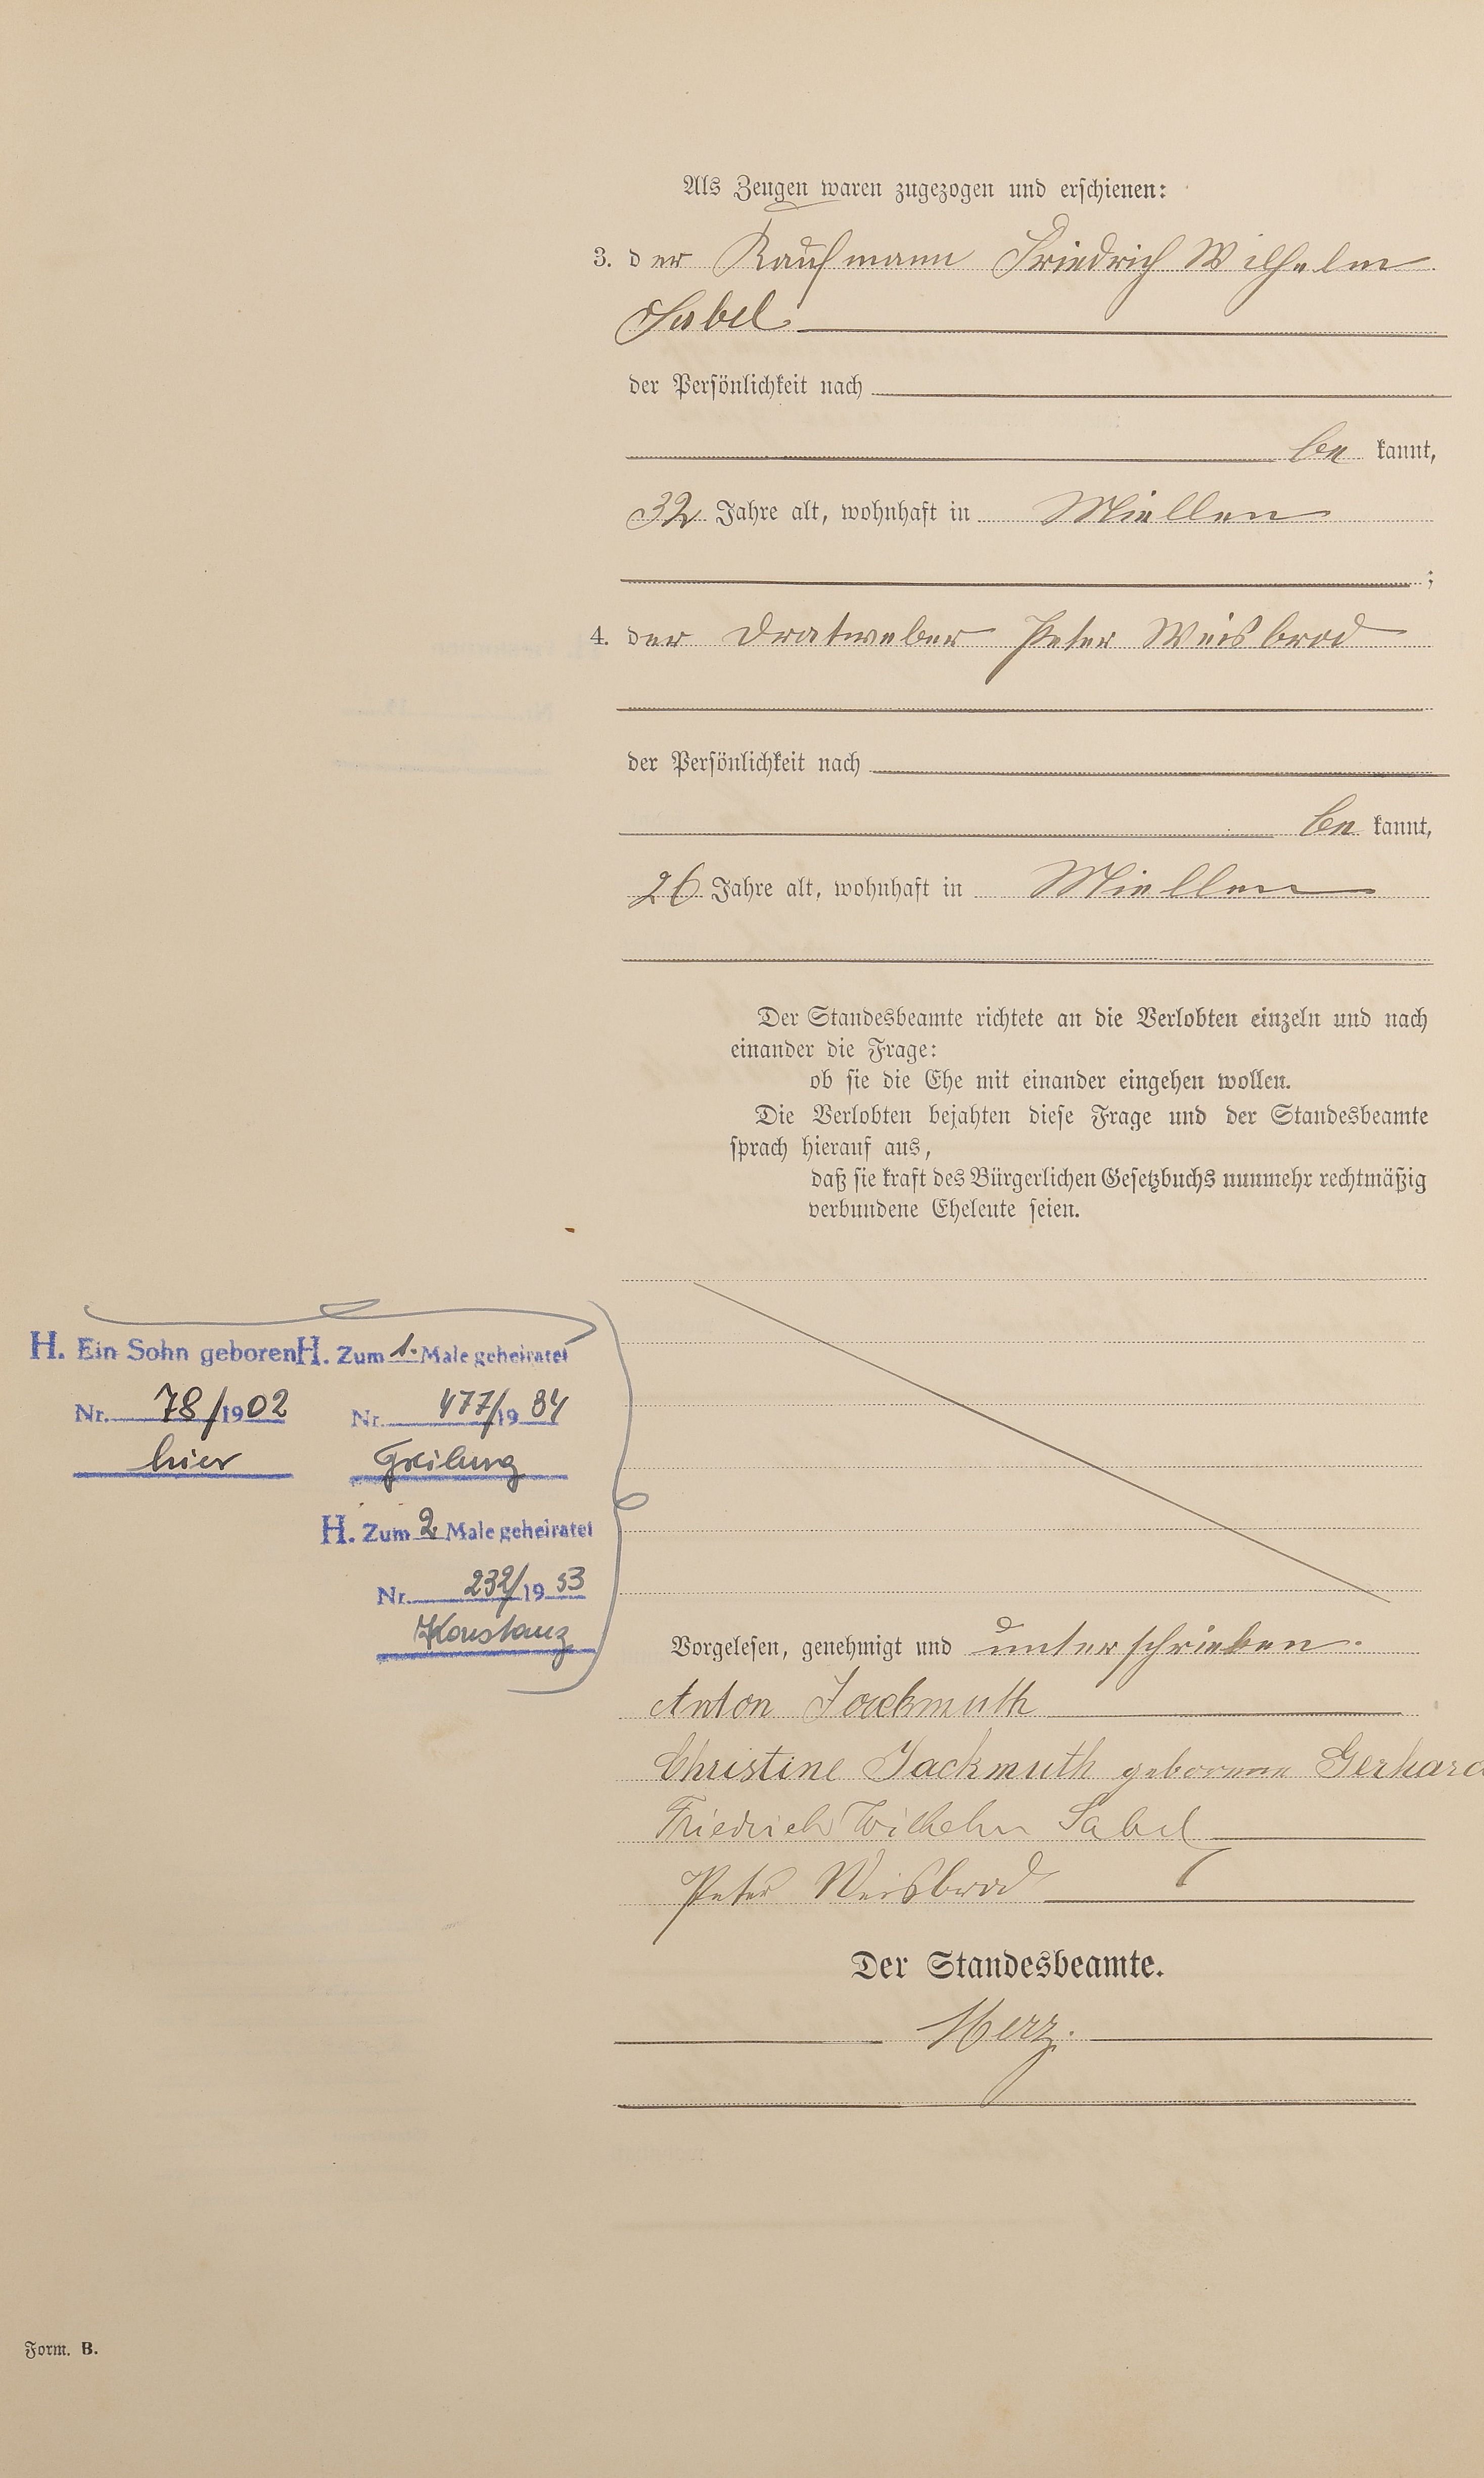 Als Zeugen waren zugezogen und erschienen:
3. der Kaufmann Friedrich Wilhelm
Sabel
der Persönlichkeit nach
be kannt,
32 Jahre alt, wohnhaft in Miellen
;
4. der Dratweber Peter Weisbrod
der Persönlichkeit nach
be kannt,
26 Jahre alt, wohnhaft in Miellen
Der Standesbeamte richtete an die Verlobten einzeln und nach
einander die Frage:
ob sie die Ehe mit einander eingehen wollen.
Die Verlobten bejahten diese Frage und der Standesbeamte
sprach hierauf aus,
daß sie kraft des Bürgerlichen Gesetzbuchs nunmehr rechtmäßig
verbundene Eheleute seien.
H. Ein Sohn geboren
Nr. 78/1902
hier
H. Zum 1. Male geheiratet
Nr. 477/19 34
H. Zum 2 Male geheiratet
Nr. 232/19 53
Konstanz
Vorgelesen, genehmigt und unterschrieben.
Anton Jackmuth
Christine Jackmuth geborene Gerhard
Friedrich Wilhelm Sabel
Peter Weisbrod
Der Standesbeamte.
Merz.
Form. B.